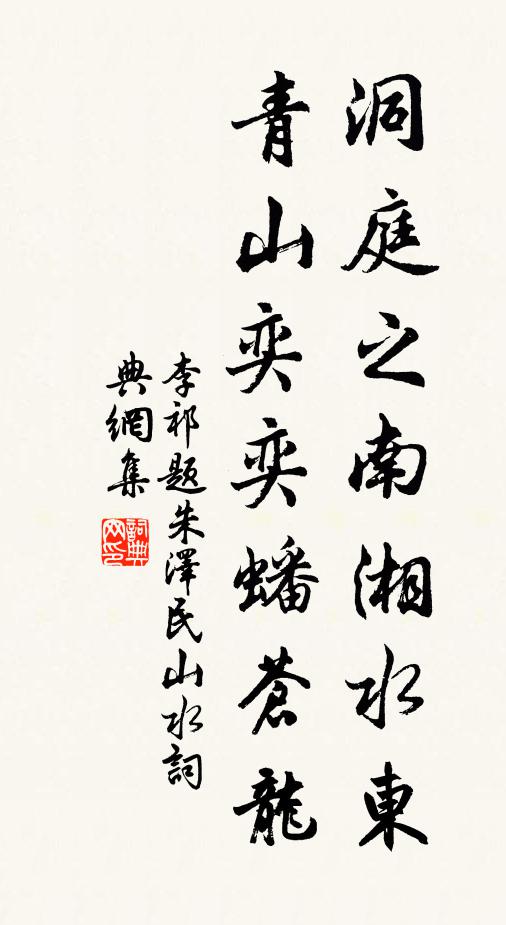 洞庭之南湘水東
青山奕奕蟠蒼龍
李祁題朱澤民山水詞
典網集
詞典網印